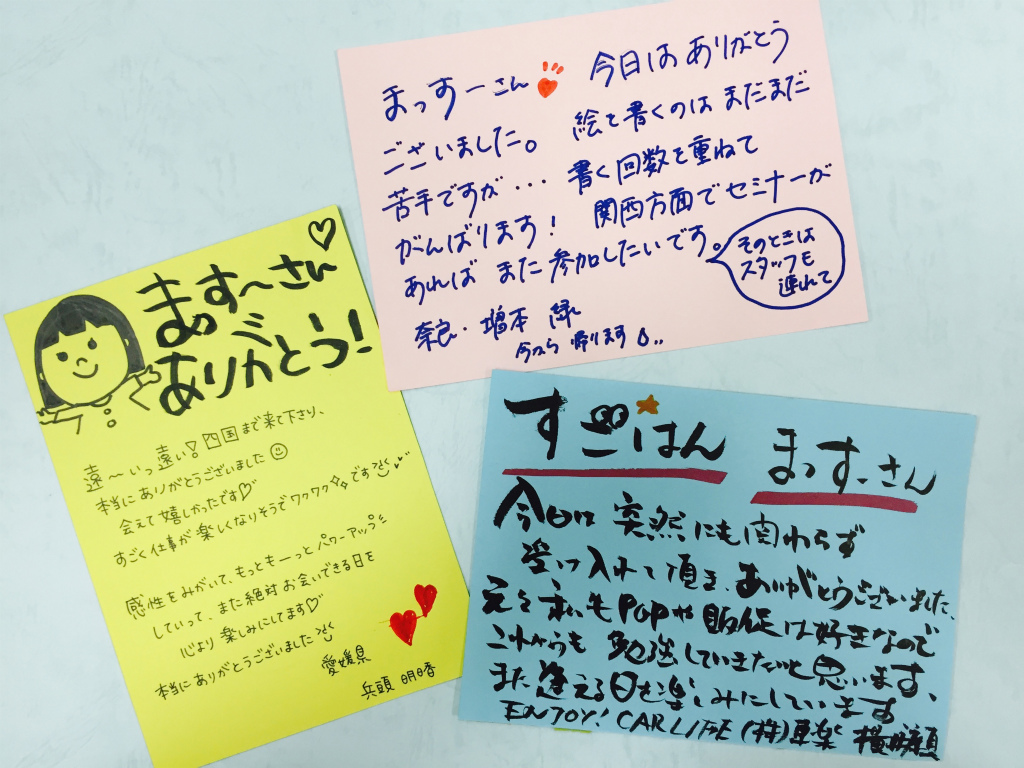 まっすーさん 今日は ありがとう
ございました。 絵を書くのは まだまだ
苦手ですが・・・ 書く回数を重ねて
がんばります! 関西方面でセミナーが
あれば また参加したいです。
そのときは
スタッフも
連れて
奈良・増本 緑
今から 帰ります
まっすーさん
ありがとう!
遠〜いっ遠い!四国まで来て下さり、
本当にありがとうございました
会えて嬉しかったです♡
すごく仕事が楽しくなりそうでワクワクです
感性をみがいて、もっともーっとパワーアップ
していって、また絶対お会いできる日を
心より楽しみにしてます♡
本当にありがとうございました
愛媛県
兵頭 明日香
すごはん まっすーさん
今日は 突然にも関わらず
受け入れて頂き、ありがとうございました、
元々私もPOPや販促は好きなので
これからも 勉強していきたいと思います、
また逢える日を楽しみにしています
ENJOY! CARLIFE (株)車楽